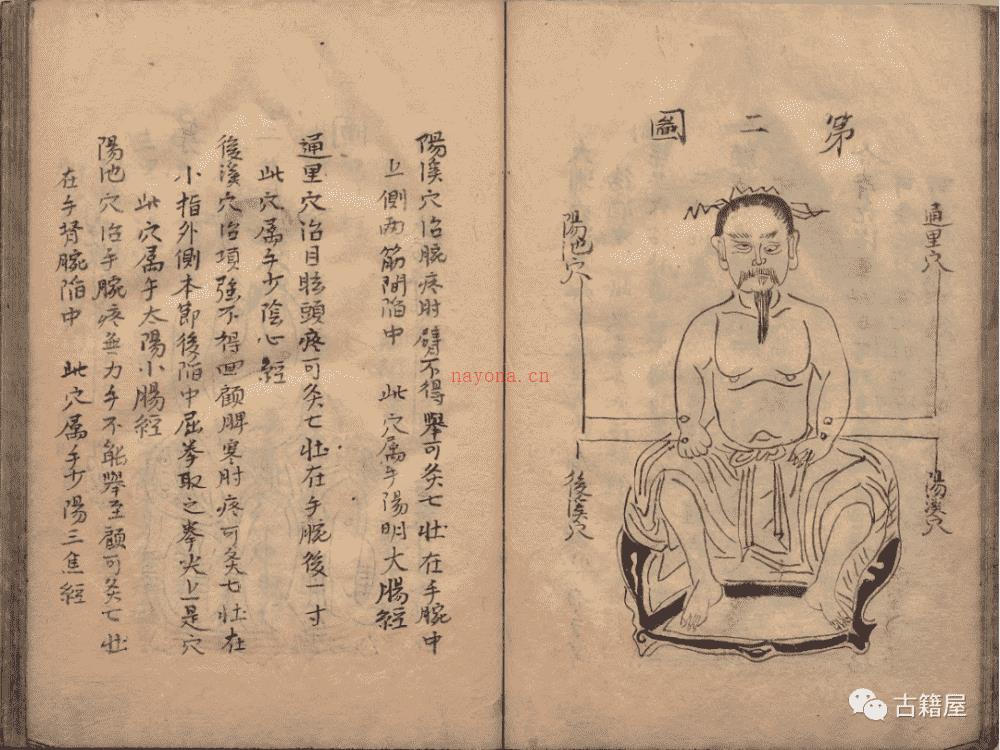 第二圖
通里穴
陽溪穴
陽池穴
後溪穴
陽溪穴治腕疼肘臂不得舉可灸七壯在手腕中
上側兩筋間陷中 此穴属手陽明大腸經
通里穴治目眩頭疼可灸七壯在手腕後一寸
此穴属手少陰心經
後溪穴治項強不得回顧脾寒肘疼可灸七壯在
小指外側本節後陷中屈拳取之拳尖上是穴
此穴属手太陽小腸經
陽池穴治手腕疼無力手不能舉至頭可灸七壯
在手背腕陷中 此穴属手少陽三焦經
nayona.cn
古籍屋